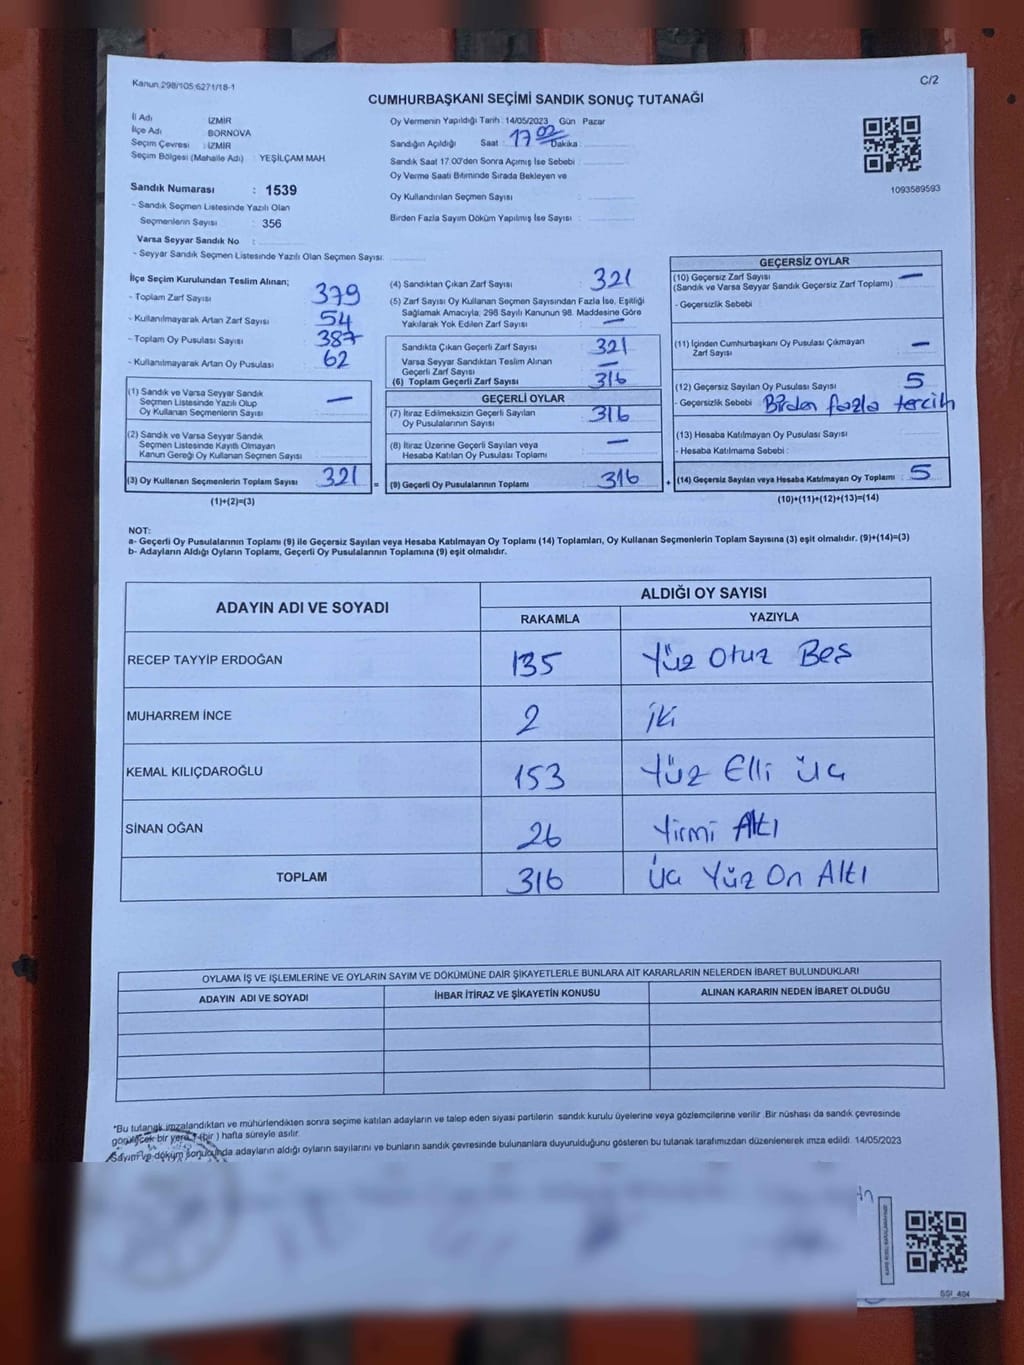 Kanun 298/105 6271/18-1
C/2
CUMHURBAŞKANI SEÇİMİ SANDIK SONUÇ TUTANAĞI
İl Adı İZMİR
İlçe Adı BORNOVA
Seçim Çevresi : İZMİR
Seçim Bölgesi (Mahalle Adı) : YEŞİLÇAM MAH.
Sandık Numarası : 1539
- Sandık Seçmen Listesinde Yazılı Olan
Seçmenlerin Sayısı : 356
Varsa Seyyar Sandık No :
- Seyyar Sandık Seçmen Listesinde Yazılı Olan Seçmen Sayısı:
Oy Vermenin Yapıldığı Tarih : 14/05/2023 Gün Pazar
Sandığın Açıldığı Saat : 17 02 Dakika
Sandık Saat 17:00'den Sonra Açımış İse Sebebi :
Oy Verme Saati Bitiminde Sırada Bekleyen ve
Oy Kullandırılan Seçmen Sayısı :
Birden Fazla Sayım Döküm Yapılmış İse Sayısı :
1093589593
İlçe Seçim Kurulundan Teslim Alınan;
- Toplam Zarf Sayısı : 379
- Kullanılmayarak Artan Zarf Sayısı : 54
- Toplam Oy Pusulası Sayısı : 387
- Kullanılmayarak Artan Oy Pusulası : 62
(1) Sandık ve Varsa Seyyar Sandık
Seçmen Listesinde Yazılı Olup
Oy Kullanan Seçmenlerin Sayısı : —
(2) Sandık ve Varsa Seyyar Sandık
Seçmen Listesinde Kayıtlı Olmayan
Kanun Gereği Oy Kullanan Seçmen Sayısı :
(3) Oy Kullanan Seçmenlerin Toplam Sayısı : 321
(1)+(2)=(3)
(4) Sandıktan Çıkan Zarf Sayısı : 321
(5) Zarf Sayısı Oy Kullanan Seçmen Sayısından Fazla İse, Eşitliği
Sağlamak Amacıyla, 298 Sayılı Kanunun 98. Maddesine Göre
Yakılarak Yok Edilen Zarf Sayısı : —
Sandıkta Çıkan Geçerli Zarf Sayısı : 321
Varsa Seyyar Sandıktan Teslim Alınan
Geçerli Zarf Sayısı : —
(6) Toplam Geçerli Zarf Sayısı : 316
GEÇERLİ OYLAR
(7) İtiraz Edilmeksizin Geçerli Sayılan
Oy Pusulalarının Sayısı : 316
(8) İtiraz Üzerine Geçerli Sayılan veya
Hesaba Katılan Oy Pusulası Toplamı : —
= (9) Geçerli Oy Pusulalarının Toplamı : 316
GEÇERSİZ OYLAR
(10) Geçersiz Zarf Sayısı : —
(Sandık ve Varsa Seyyar Sandık Geçersiz Zarf Toplamı)
- Geçersizlik Sebebi :
(11) İçinden Cumhurbaşkanı Oy Pusulası Çıkmayan
Zarf Sayısı : —
(12) Geçersiz Sayılan Oy Pusulası Sayısı : 5
- Geçersizlik Sebebi : Birden fazla tercih
(13) Hesaba Katılmayan Oy Pusulası Sayısı :
- Hesaba Katılmama Sebebi :
+ (14) Geçersiz Sayılan veya Hesaba Katılmayan Oy Toplamı : 5
(10)+(11)+(12)+(13)=(14)
NOT:
a- Geçerli Oy Pusulalarının Toplamı (9) ile Geçersiz Sayılan veya Hesaba Katılmayan Oy Toplamı (14) Toplamları, Oy Kullanan Seçmenlerin Toplam Sayısına (3) eşit olmalıdır. (9)+(14)=(3)
b- Adayların Aldığı Oyların Toplamı, Geçerli Oy Pusulalarının Toplamına (9) eşit olmalıdır.
ADAYIN ADI VE SOYADI
ALDIĞI OY SAYISI
RAKAMLA YAZIYLA
RECEP TAYYİP ERDOĞAN 135 Yüz Otuz Beş
MUHARREM İNCE 2 iki
KEMAL KILIÇDAROĞLU 153 Yüz Elli üç
SİNAN OĞAN 26 Yirmi Altı
TOPLAM 316 üç Yüz On Altı
OYLAMA İŞ VE İŞLEMLERİNE VE OYLARIN SAYIM VE DÖKÜMÜNE DAİR ŞİKAYETLERLE BUNLARA AİT KARARLARIN NELERDEN İBARET BULUNDUKLARI
ADAYIN ADI VE SOYADI İHBAR İTİRAZ VE ŞİKAYETİN KONUSU ALINAN KARARIN NEDEN İBARET OLDUĞU
*Bu tutanak imzalandıktan ve mühürlendikten sonra seçime katılan adayların ve talep eden siyasi partilerin sandık kurulu üyelerine veya gözlemcilerine verilir. Bir nüshası da sandık çevresinde
görülecek bir yere 1 (bir ) hafta süreyle asılır.
Sayım ve döküm sonucunda adayların aldığı oyların sayılarını ve bunların sandık çevresinde bulunanlara duyurulduğunu gösteren bu tutanak tarafımızdan düzenlenerek imza edildi. 14/05/2023